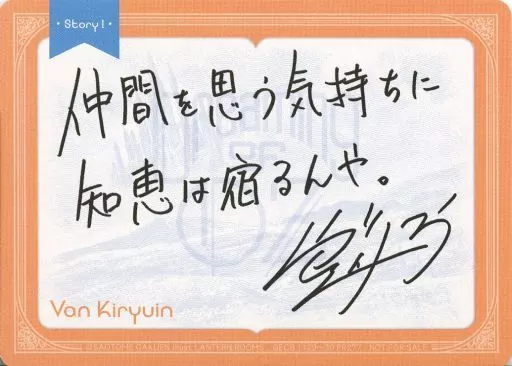 ・Story 1・
仲間を思う気持ちに
知恵は宿るんや。
Van Kiryuin